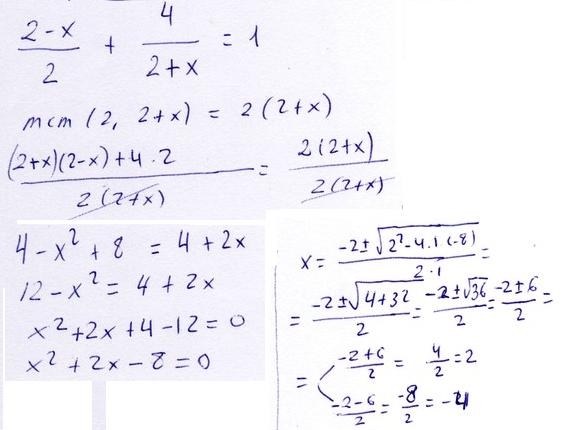 (2-x)/2 + 4/(2+x) = 1
mcm (2, 2+x) = 2(2+x)
((2+x)(2-x)+4·2)/(2(2+x)) = (2(2+x))/(2(2+x))
4-x² + 8 = 4+2x
12-x² = 4+2x
x²+2x+4-12=0
x²+2x-8=0
x = (-2±√(2²-4·1(-8)))/(2·1) =
= (-2±√(4+32))/2 = (-2±√36)/2 = (-2±6)/2 =
= (-2+6)/2 = 4/2 = 2
(-2-6)/2 = -8/2 = -4